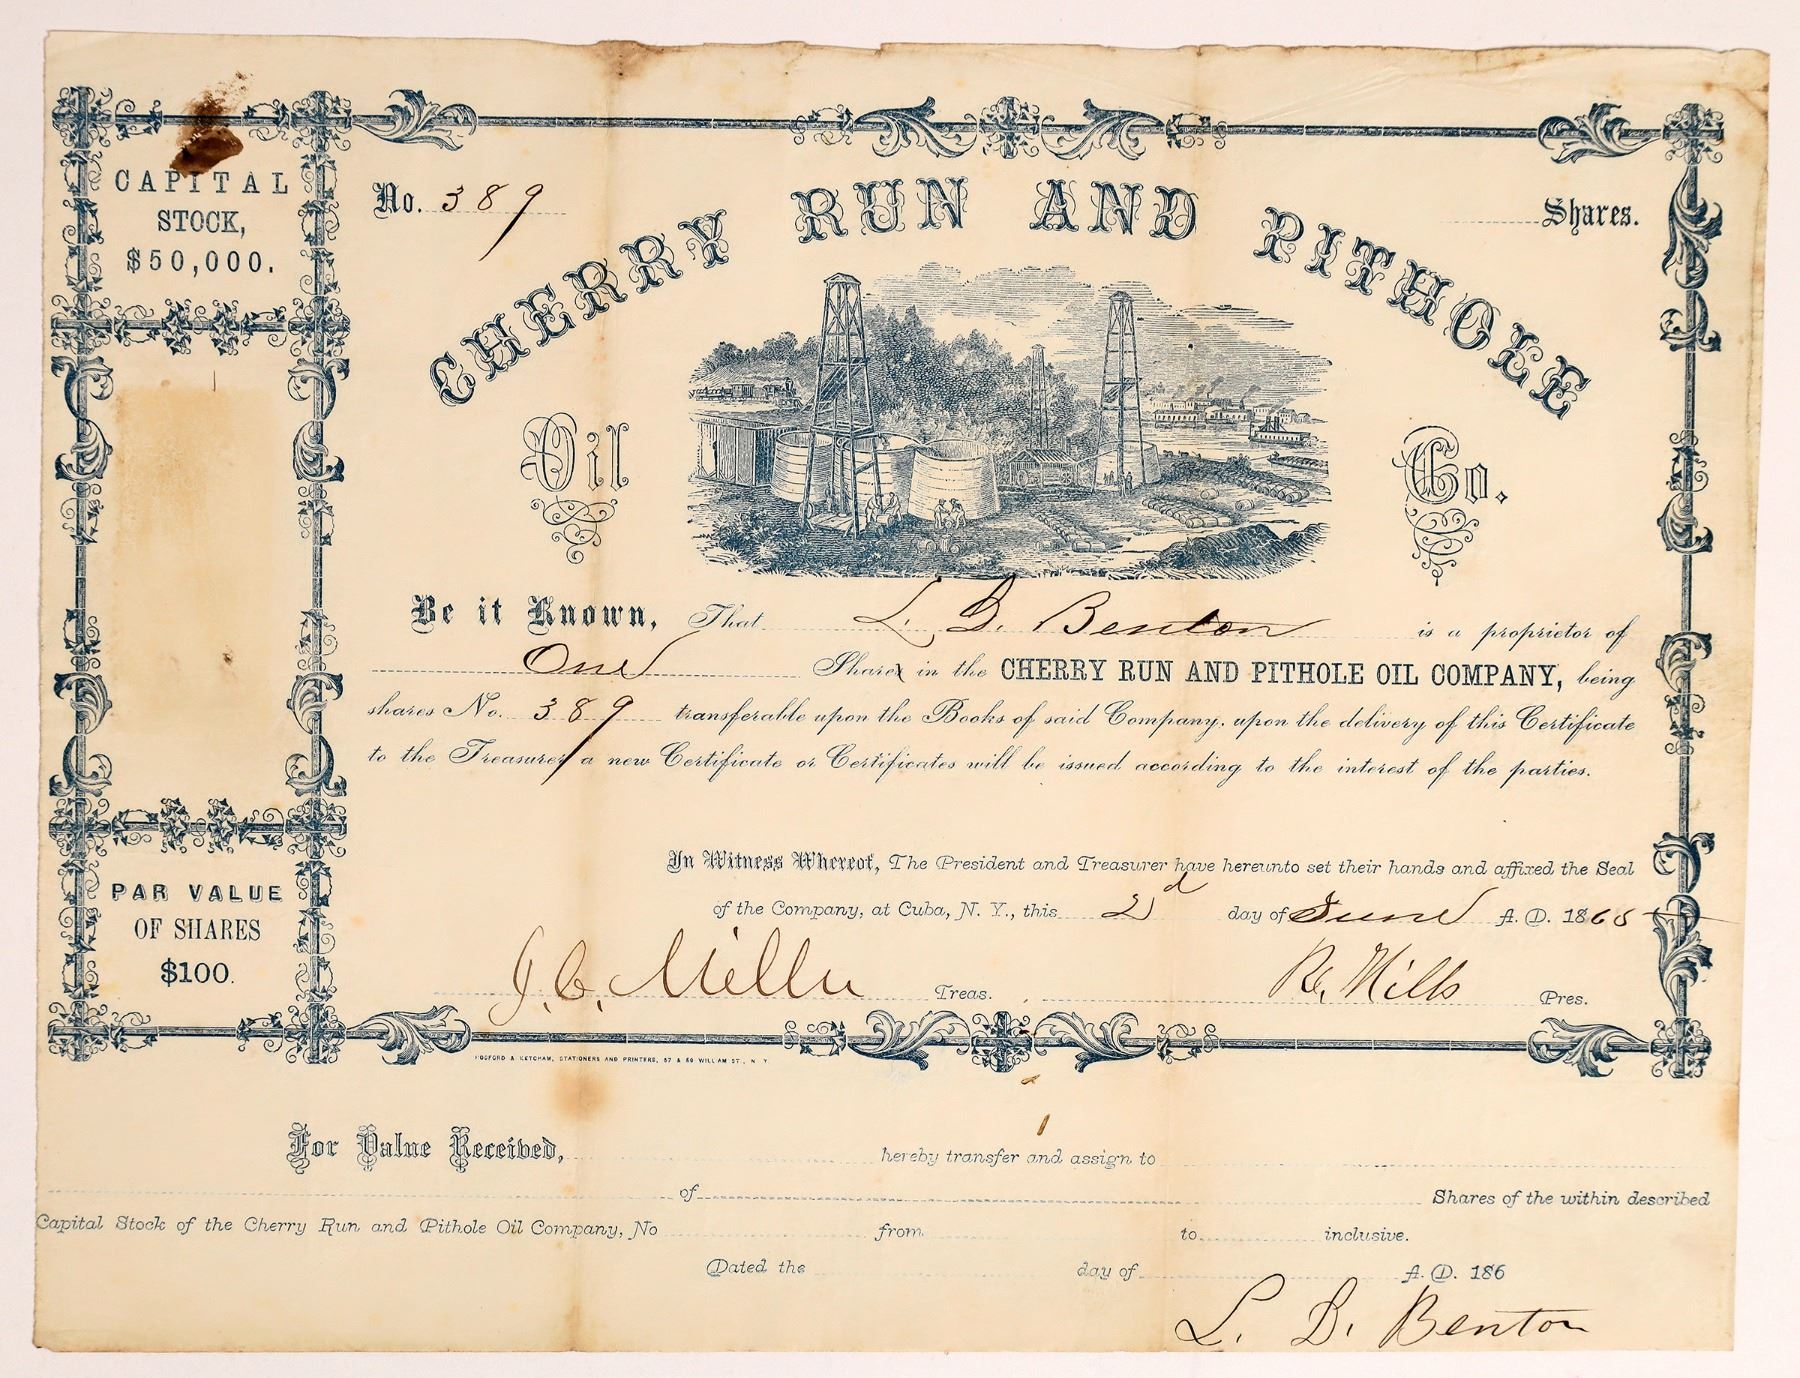 CAPITAL
STOCK,
$50,000.
No. 389
Shares.
CHERRY RUN AND PITHOLE
Oil Co.
Be it Known, That L. B. Benton is a proprietor of
One Share in the CHERRY RUN AND PITHOLE OIL COMPANY, being
shares No. 389 transferable upon the Books of said Company, upon the delivery of this Certificate
to the Treasurer, a new Certificate or Certificates will be issued according to the interest of the parties.
PAR VALUE
OF SHARES
$100.
In Witness Whereof, The President and Treasurer have hereunto set their hands and affixed the Seal
of the Company, at Cuba, N. Y., this 2d day of June A. D. 1865
J. C. Miller Treas. Mills Pres.
HOSFORD & KETCHAM, STATIONERS AND PRINTERS, 57 & 59 WILLIAM ST., N. Y.
For Value Received, hereby transfer and assign to
of Shares of the within described
Capital Stock of the Cherry Run and Pithole Oil Company, No from to inclusive.
Dated the day of A. D. 186
L. B. Benton